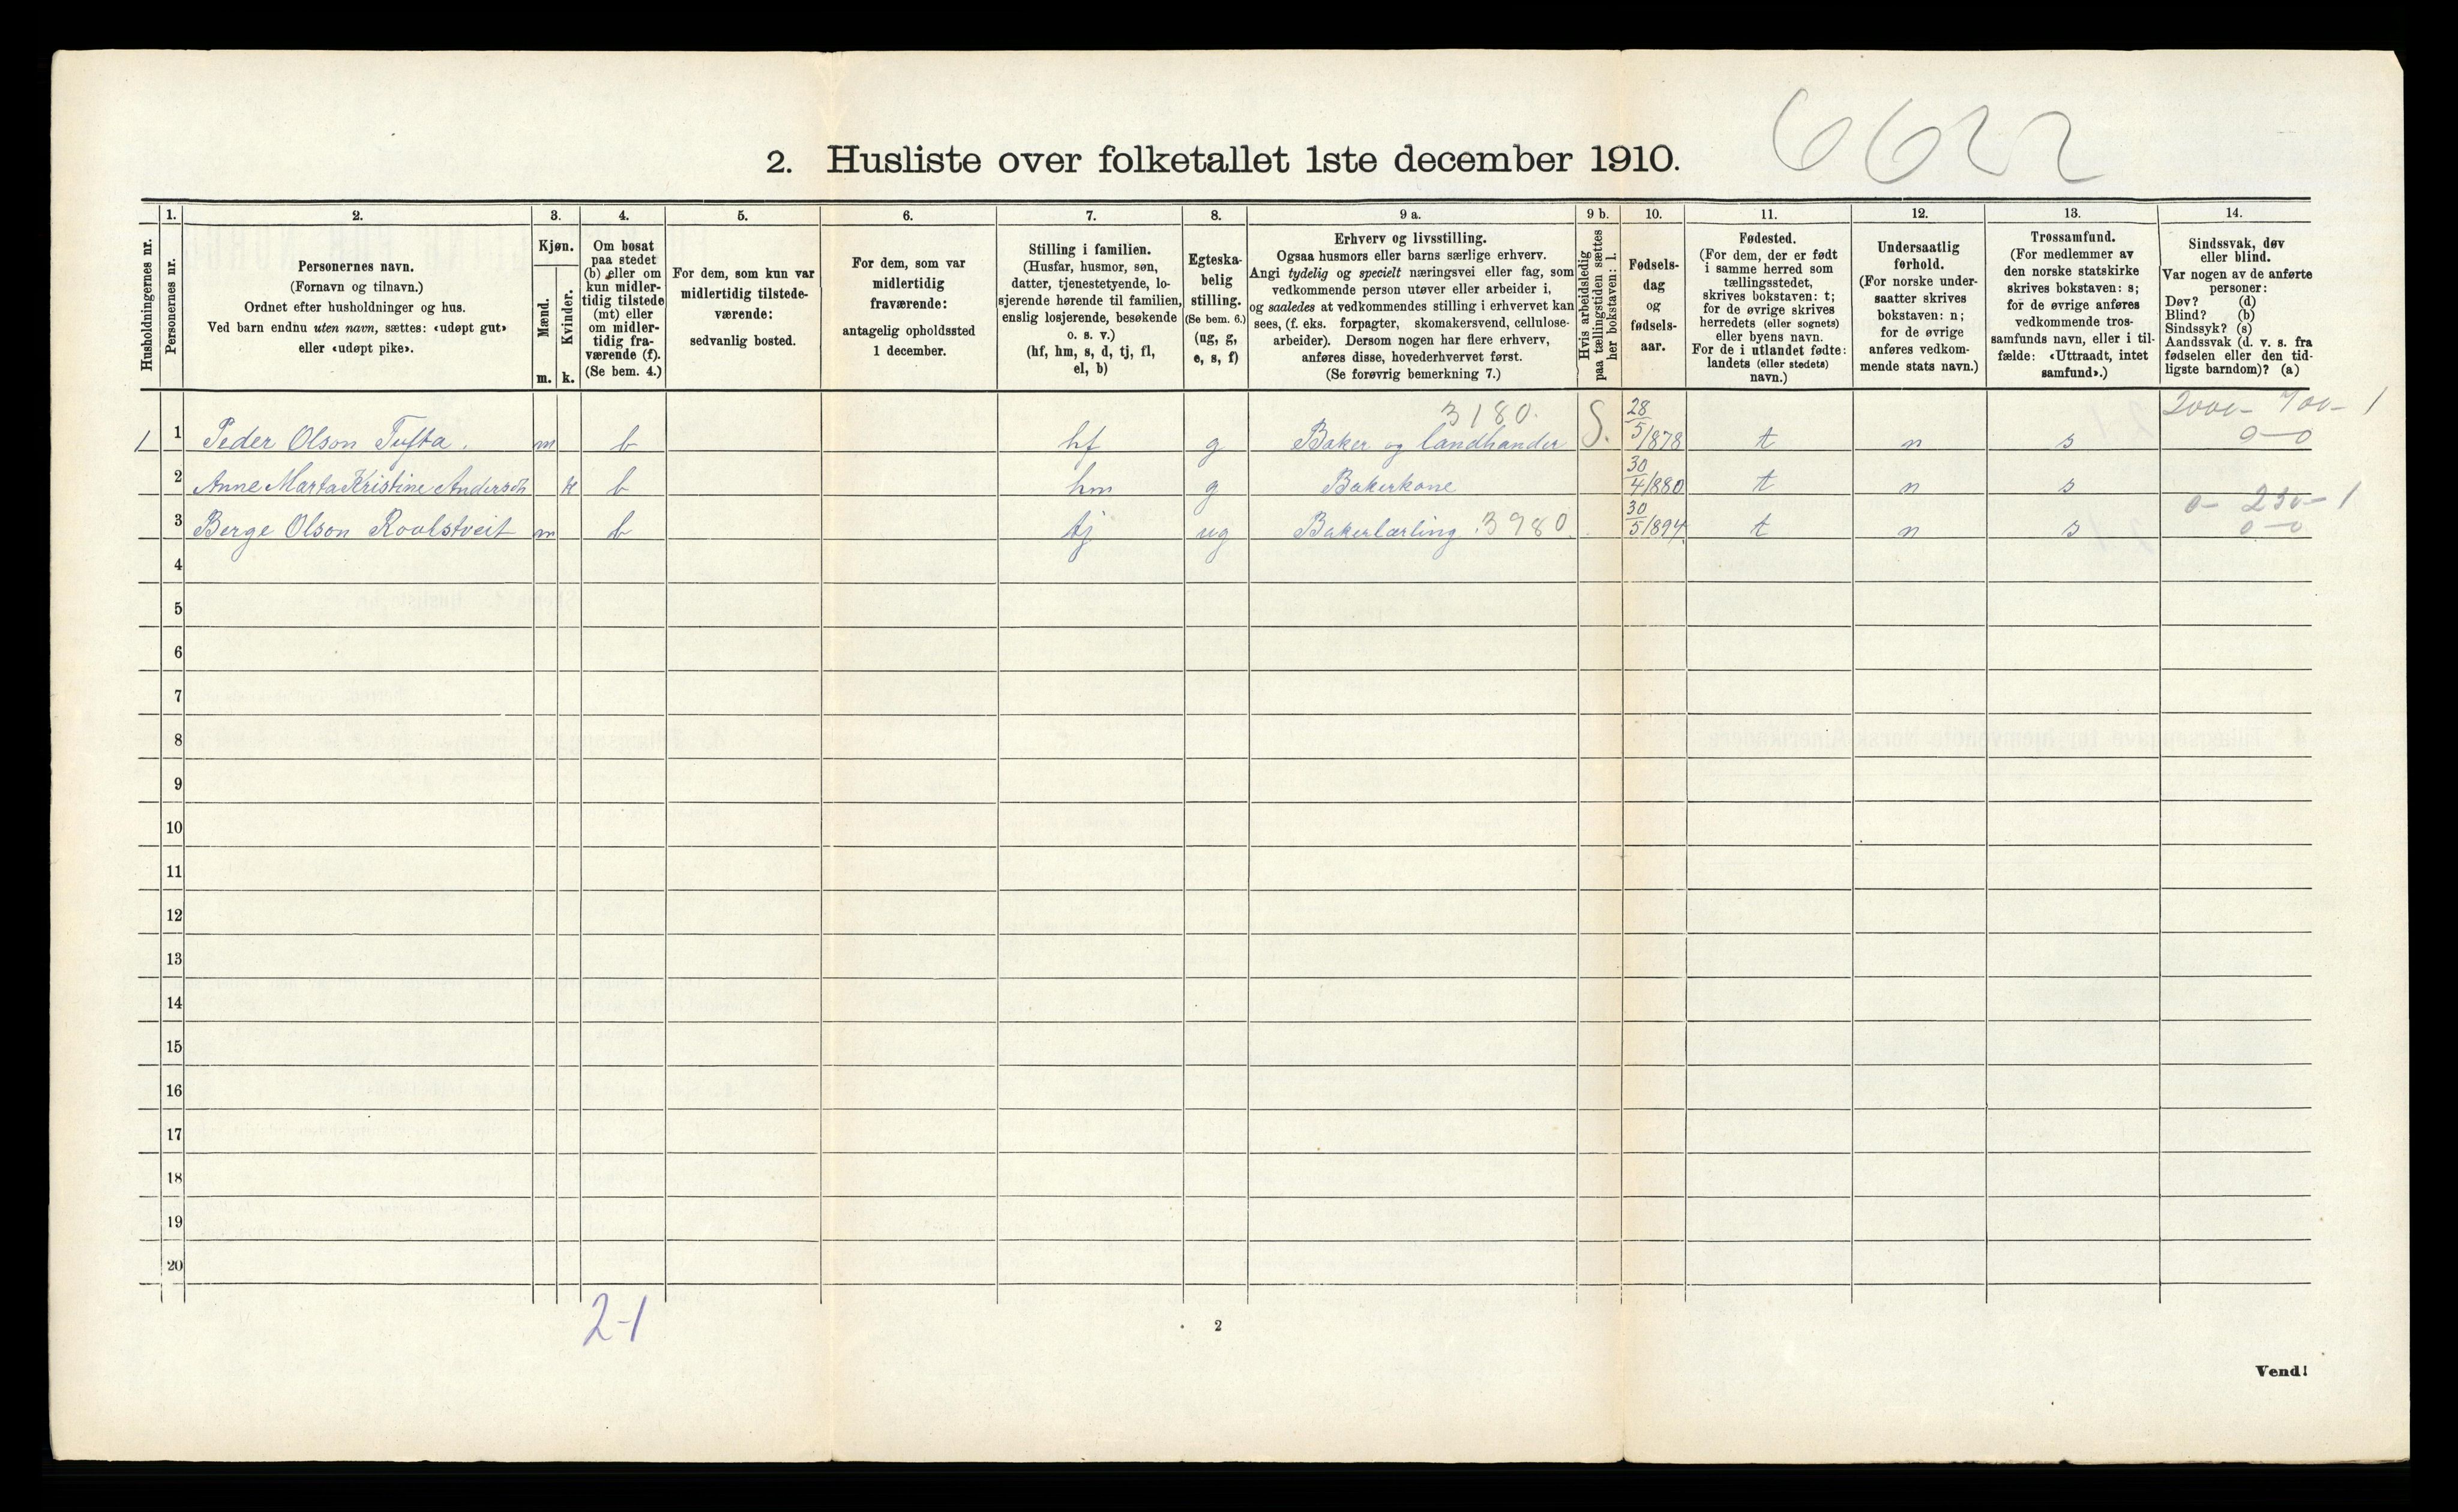 6622
2. Husliste over folketallet 1ste december 1910.
Husholdningernes nr.
1.
Personernes nr.
2.
Personernes navn.
(Fornavn og tilnavn.)
Ordnet efter husholdninger og hus.
Ved barn endnu uten navn, sættes: «udøpt gut»
eller «udøpt pike».
3.
Kjøn.
Mænd.
m.
Kvinder.
k.
4.
Om bosat
paa stedet
(b) eller om
kun midler-
tidig tilstede
(mt) eller
om midler-
tidig fra-
værende (f).
(Se bem. 4.)
5.
For dem, som kun var
midlertidig tilstede-
værende:
sedvanlig bosted.
6.
For dem, som var
midlertidig
fraværende:
antagelig opholdssted
1 december.
7.
Stilling i familien.
(Husfar, husmor, søn,
datter, tjenestetyende, lo-
sjerende hørende til familien,
enslig losjerende, besøkende
o. s. v.)
(hf, hm, s, d, tj, fl,
el, b)
8.
Egteska-
belig
stilling.
(Se bem. 6.)
(ug, g,
e, s, f)
9 a.
Erhverv og livsstilling.
Ogsaa husmors eller barns særlige erhverv.
Angi tydelig og specielt næringsvei eller fag, som
vedkommende person utøver eller arbeider i,
og saaledes at vedkommendes stilling i erhvervet kan
sees, (f. eks. forpagter, skomakersvend, cellulose-
arbeider). Dersom nogen har flere erhverv,
anføres disse, hovederhvervet først.
(Se forøvrig bemerkning 7.)
9 b.
Hvis arbeidsledig
paa tællingstiden sættes
her bokstaven: l.
10.
Fødsels-
dag
og
fødsels-
aar.
11.
Fødested.
(For dem, der er født
i samme herred som
tællingsstedet,
skrives bokstaven: t;
for de øvrige skrives
herredets (eller sognets)
eller byens navn.
For de i utlandet fødte:
landets (eller stedets)
navn.)
12.
Undersaatlig
forhold.
(For norske under-
saatter skrives
bokstaven: n;
for de øvrige
anføres vedkom-
mende stats navn.)
13.
Trossamfund.
(For medlemmer av
den norske statskirke
skrives bokstaven: s;
for de øvrige anføres
vedkommende tros-
samfunds navn, eller i til-
fælde: «Uttraadt, intet
samfund».)
14.
Sindssvak, døv
eller blind.
Var nogen av de anførte
personer:
Døv? (d)
Blind? (b)
Sindssyk? (s)
Aandssvak (d. v. s. fra
fødselen eller den tid-
ligste barndom)? (a)
3180. 28 2000- 700- 1
1 1 Peder Olson Tufta. m b hf g Baker og landhander S. 5/878 t n s 0-0
30
2 Anne Marta Kristine Anderson k b hm g Bakerkone 4/880 t n s
30 0- 250- 1
3 Berge Olson Roalstveit m b tj ug Bakerlærling 3980. 5/894 t n s 0-0
4
5
6
7
8
9
10
11
12
13
14
15
16
17
18
19
20
2-1
2
Vend!